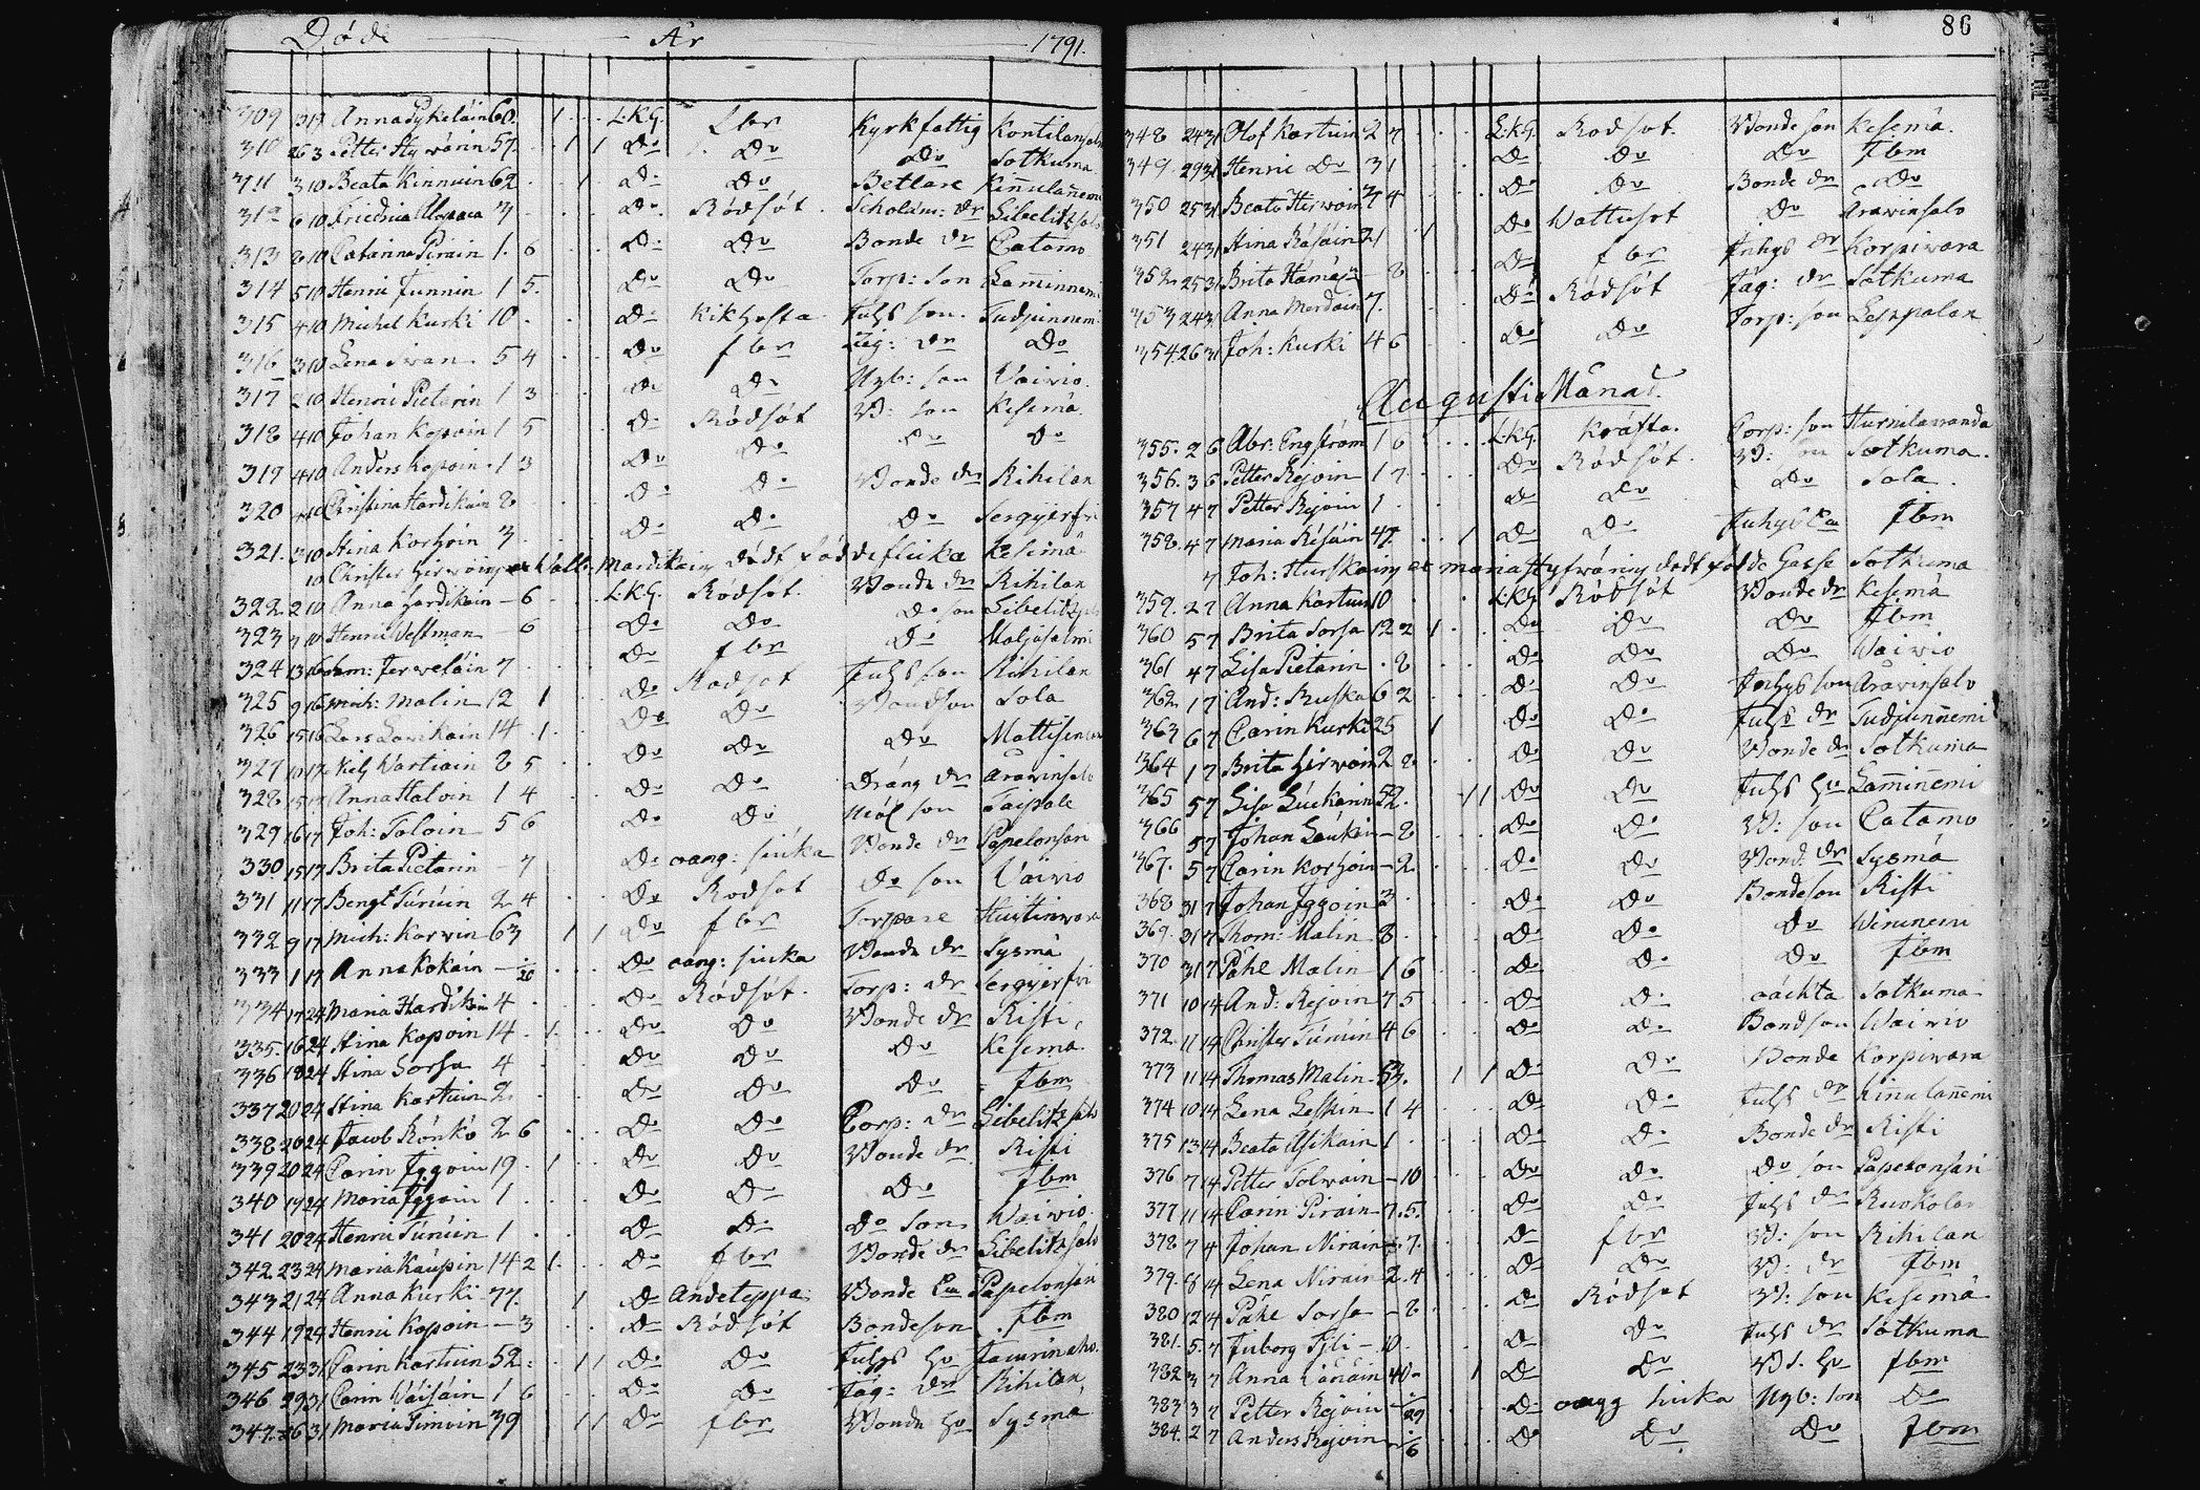 Döde År 1791.
309 13 17 Anna Pykeläin 60. 1 L.K.G. fbr Kyrkfattig Kontilan
310 26 3 Petter Hywärin 57. 1 1 Do Do Do Sotkuma
311 3 10 Beata Kinnuin 62 1 Do Do Betlare Kinnulanemi
312 6 10 Fredrica 3 Do Rödsót Scholäm: dr Libelitzsalo
313 8 10 Catarina Pirain 1. 6 Do Do Bonde dr Catamo
314 5 10 Henric Junnin 1 5. Do Do Torp: son Laminnemi
315 4 10 Michel Kurki 10. Do Kikhosta Juhs son Tudjunnemi
316 3 10 Lena Iwan 5 4 Do fbr Läg: dr Do
317 2 10 Henric Pietarin 1 3 Do Do Ngb: son Vaivio
318 4 10 Johan Kopoin 1 5 Do Rödsót B: son Kesemä
319 4 10 Anders Kopoin 1 3 Do Do Do Do
320 4 10 Christina Hardikain 8 Do Do Bonde dr Rihilan
321. 3 10 Stina Korhoin 3 Do Do Do Sergijerfvi
10 Christer Hirwoin Walb: Mardikain dödt föd de flicka Kesemä
322 2 10 Anna Hardikain — 6 L.K.G. Rödsót Bonde dr Rihilan
323 3 10 Henric Westman — 6 Do Do Do son Libelitzsalo
324 13 16 Sam: Jerweläin 7 Do fbr Do Maljasalmi
325 9 16 Mich: Malin 12 1 Do Rodsot Juhs son Rihilan
326 15 16 Lars Lavikain 14 1 Do Do Bondson Sola
327 10 17 Kelj Wartiain 8 5 Do Do Do Mattisen
328 15 17 Anna Halvin 1 4 Do Do Dräng dr Arawinsalo
329 16 17 Joh: Toloin 5 6 Do Do Miöl son Taipale
330 15 17 Brita Pietarin 7 Do oang: siuka Bonde dr Papelonsari
331 11 17 Bengt Turuin 2 4 Do Rodsot Do son Vaivio
332 9 17 Mich: Korvin 63 1 1 Do fbr Torpare Hustinwara
333 1 17 Anna Kokain — 20 Do oang: siuka Bonde dr Sysmä
334 17 24 Maria Hardikain 4 Do Rödsót Torp: dr Sergijerfvi
335. 16 24 Stina Kopoin 14 1 Do Do Bonde dr Risti
336 18 24 Stina Sorsa 4 Do Do Do Kesema
337 20 24 Stina Kortuin 2 Do Do Do Jbm
338 20 24 Jacob Rönkö 2 6 Do Do Torp: dr Libelitzsalo
339 20 24 Carin Iggoin 19 1 Do Do Bonde dr Risti
340 19 24 Maria Iggoin 1 Do Do Do Jbm
341 20 24 Henric Turuin 1 Do Do Do son Waivio
342 23 24 Maria Kaupin 14 2 1 Do fbr Bonde dr Libelitzsalo
343 21 24 Anna Kurki 77. 1 Do Andeteppa Bonde Ea Papelonsari
344 19 24 Henric Kopoin — 3 Do Rödsót Bondeson Jbm
345 23 31 Carin Kortuin 52 1 1 Do Do Juhs Hu
346 29 31 Carin Väisäin 1 6 Do Do Läg: dr Rihilan
347 26 31 Maria Simoin 39 1 1 Do fbr Bonde Hu Sysma
86
348 24 31 Olof Kortuin 2 7 L.K.G. Rodsot Bonde son Kesemä
349 29 31 Henric Do 3 1 Do Do Do Jbm
350 25 31 Beata Hirwoin 7 4 Do Do Bonde dr Do
351 24 31 Stina Räsäin 21 1 Do Wattusot Do Arawinsalo
352 25 31 Brita Hämäläin — 8 Do fbr Inhys dr Korpiwara
353 24 31 Anna Merdäin 7. Do Rödsót Läg: dr Sotkuma
354 26 31 Joh: Kurki 4 6 Do Do Torp: son Leppälan
Augusti Månad.
355. 2 6 Abr: Engström 1 6 L.K.G. Kräfta Torp: son
356. 3 6 Petter Rejoin 1 7 Do Rödsót B: son Sotkuma
357 4 7 Petter Rejoin 1 Do Do Do Sola
358. 4 7 Maria Räsäin 47. 1 Do Do Inhys Ea Jbm
7 Joh: Hurskain et Maria Hyfwärin dödt föd de Gosse Sotkuma
359. 2 7 Anna Kortuin 10 L.K.G. Rödsót Bonde dr Kesemä
360 5 7 Brita Sorsa 12 2 1 Do Do Do Jbm
361 4 7 Lisa Pietarin . 8 Do Do Do Waivio
362. 1 7 And: Ruska 6 2 Do Do Inhys son Arawinsalo
363 6 7 Carin Kurki 25 1 Do Do Juhs dr Tudjunnemi
364 1 7 Brita Hirwoin 2 8 Do Do Bonde dr Sotkuma
365 5 7 Lisa Läukarin 52. 1 1 Do Do Juhs Hu Laminnemi
366 5 7 Johan Läukain — 8 Do Do B: son Catamo
367. 5 7 Carin Korhoin — 2 Do Do Bond: dr Sysmä
368 31 7 Johan Iggoin 3 Do Do Bondeson Risti
369. 31 7 Thom: Malin 8 Do Do Do Wininemi
370 31 7 Påhl Malin 1 6 Do Do Do Jbm
371 10 14 And: Rejoin 7 5 Do Do oäckta Sotkuma
372. 11 14 Christer Turuin 4 6 Do Do Bondson Waivio
373 11 14 Thomas Malin 53. 1 1 Do Do Bonde Korpiwara
374 10 14 Lena Leskin 1 4 Do Do Juhs dr Kinulanemi
375 13 14 Beata Asikain 1 Do Do Bonde dr Risti
376 7 14 Petter Tolwain — 10 Do Do Do son Papelonsari
377 11 14 Carin Pirain 7. 5. Do Do Juhs dr Ruokolax
378 7 4 Johan Nirain — 7. Do fbr B: son Rihilan
379. 8 14 Lena Nirain 2. 4 Do Do B: dr Jbm
380 12 14 Påhl Sorsa — 8 Do Rödsot B: son Kesemä
381. 5. 7 Juborg — 10 Do Do Juhs dr Sotkuma
382 3 7 Anna 40 1 Do Do Hu Jbm
383 3 7 Petter Rejoin — 29 Do oangg siuka Ngb: son Do
384. 2 7 Anders Rejoin — 6 Do Do Do Jbm